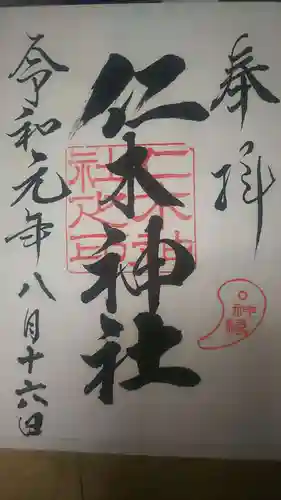 奉拝
仁木神社
仁木神
社之印
神璽
令和元年八月十六日